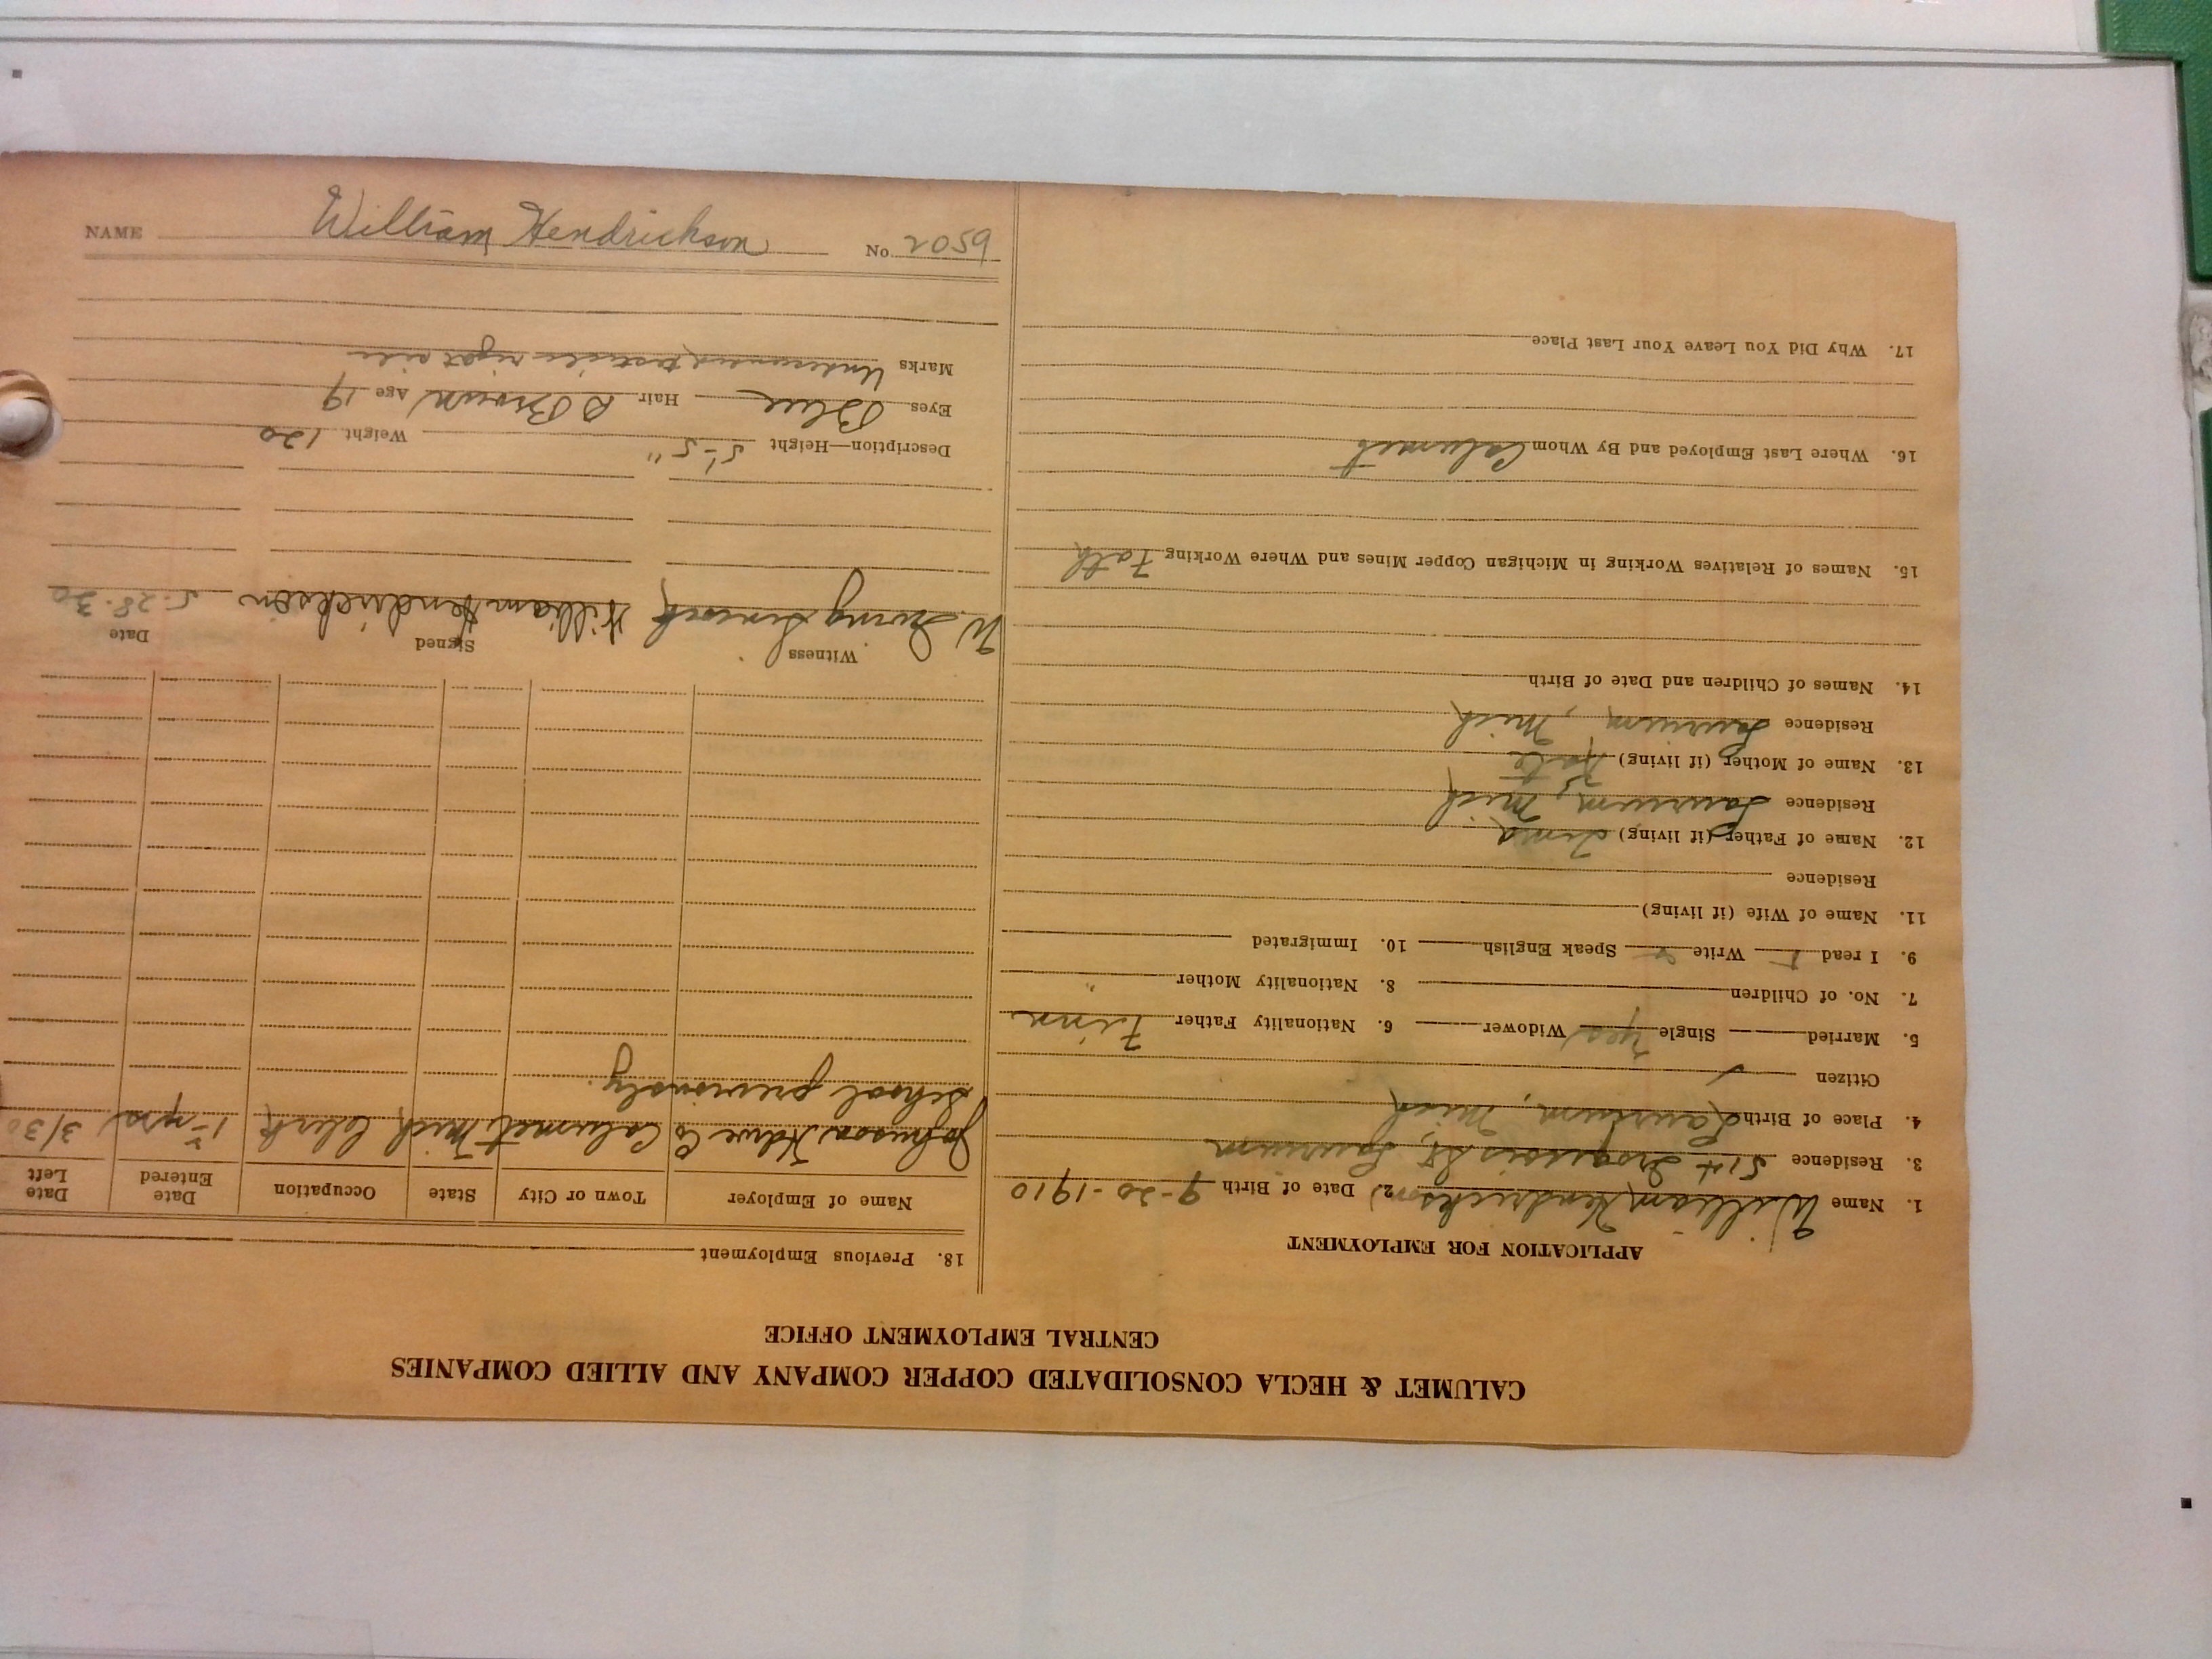 CALUMET & HECLA CONSOLIDATED COPPER COMPANY AND ALLIED COMPANIES
CENTRAL EMPLOYMENT OFFICE
APPLICATION FOR EMPLOYMENT
1. Name William Hendrickson 2. Date of Birth 9-20-1910
3. Residence Iroquois St, Laurium
4. Place of Birth Laurium, Mich
Citizen ✓
5. Married Single Yes Widower 6. Nationality Father Finn
7. No. of Children 8. Nationality Mother "
9. I read Write Speak English 10. Immigrated
11. Name of Wife (if living)
Residence
12. Name of Father (if living)
Residence Laurium, Mich
13. Name of Mother (if living) Kate
Residence Laurium, Mich
14. Names of Children and Date of Birth
15. Names of Relatives Working in Michigan Copper Mines and Where Working Fath
16. Where Last Employed and By Whom Calumet
17. Why Did You Leave Your Last Place
18. Previous Employment
Name of Employer Town or City State Occupation Date Entered Date Left
Johnson Hdwe Co Calumet Mich Clerk 1½ yrs 3/30
School previously
Witness Signed Date
W. William Hendrickson 5-28-30
Description—Height 5'-5" Weight 120
Eyes Blue Hair D Brown Age 19
Marks Undescended testicle right side
NAME William Hendrickson No. 2059